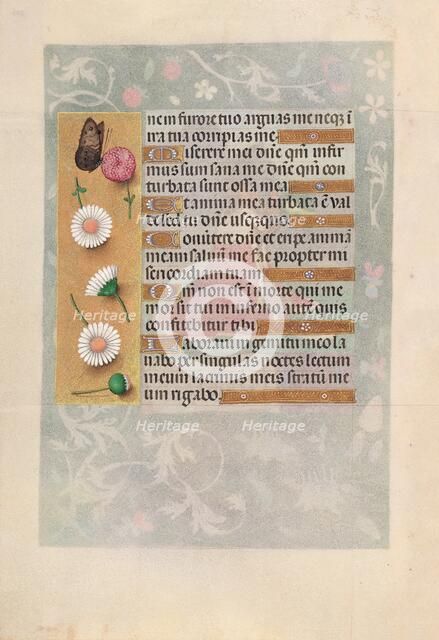 ne in furore tuo arguas me neqȝ ī
ira tua corripias me.
Miserere mei dn̄e qm̄ infir
mus sum sana me dn̄e qm̄ con
turbata sunt ossa mea
Et anima mea turbata ē val
de sed tu dn̄e usequequo
Convertere dn̄e et eripe animā
meam salvū me fac propter mi
sericordiam tuam.
Qm̄ non est ī morte qui me
mor sit tui in inferno autē quis
confitebitur tibi
Laboravi in gemitu meo la
vabo per singulas noctes lectum
meum lacrimis meis stratū me
um rigabo.
Heritage
Heritage
Heritage
Heritage
Heritage
Heritage